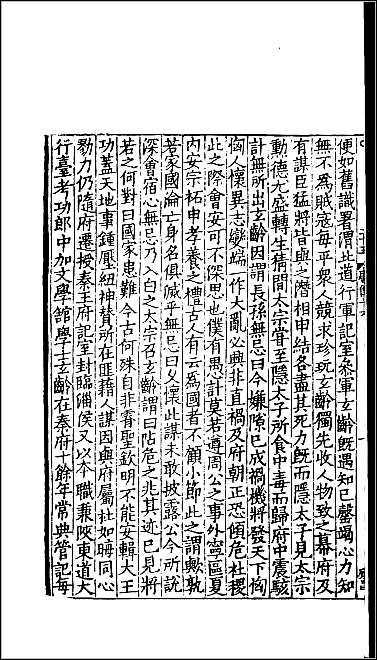 便如舊識署渭北道行軍記室參軍玄齡旣遇知己罄竭心力知
無不爲賊寇每平衆人競求珍玩玄齡獨先收人物致之幕府及
有謀臣猛將皆與之潛相申結各盡其死力旣而隱太子見太宗
勳德尤盛轉生猜間太宗甞至隱太子所食中毒而歸府中震駭
計無所出玄齡因謂長孫無忌曰今嫌隙已成禍機將發天下恟
恟人懷異志變端一作大亂必興非直禍及府朝正恐傾危社稷
此之際會安可不深思也僕有愚計莫若遵周公之事外寧區夏
內安宗社申孝養之禮古人有云爲國者不顧小節此之謂歟孰
若家國淪亡身名俱滅乎無忌曰乆懷此謀未敢披露公今所說
深會宿心無忌乃入白之太宗召玄齡謂曰阽危之兆其迹已見將
若之何對曰國家患難今古何殊自非睿聖欽明不能安輯大王
功蓋天地事鍾壓紐神賛所在匪藉人謀因與府屬杜如晦同心
勠力仍隨府遷授秦王府記室封臨淄侯又以本職兼陜東道大
行臺考功郎中加文學館學士玄齡在秦府十餘年常典管記每